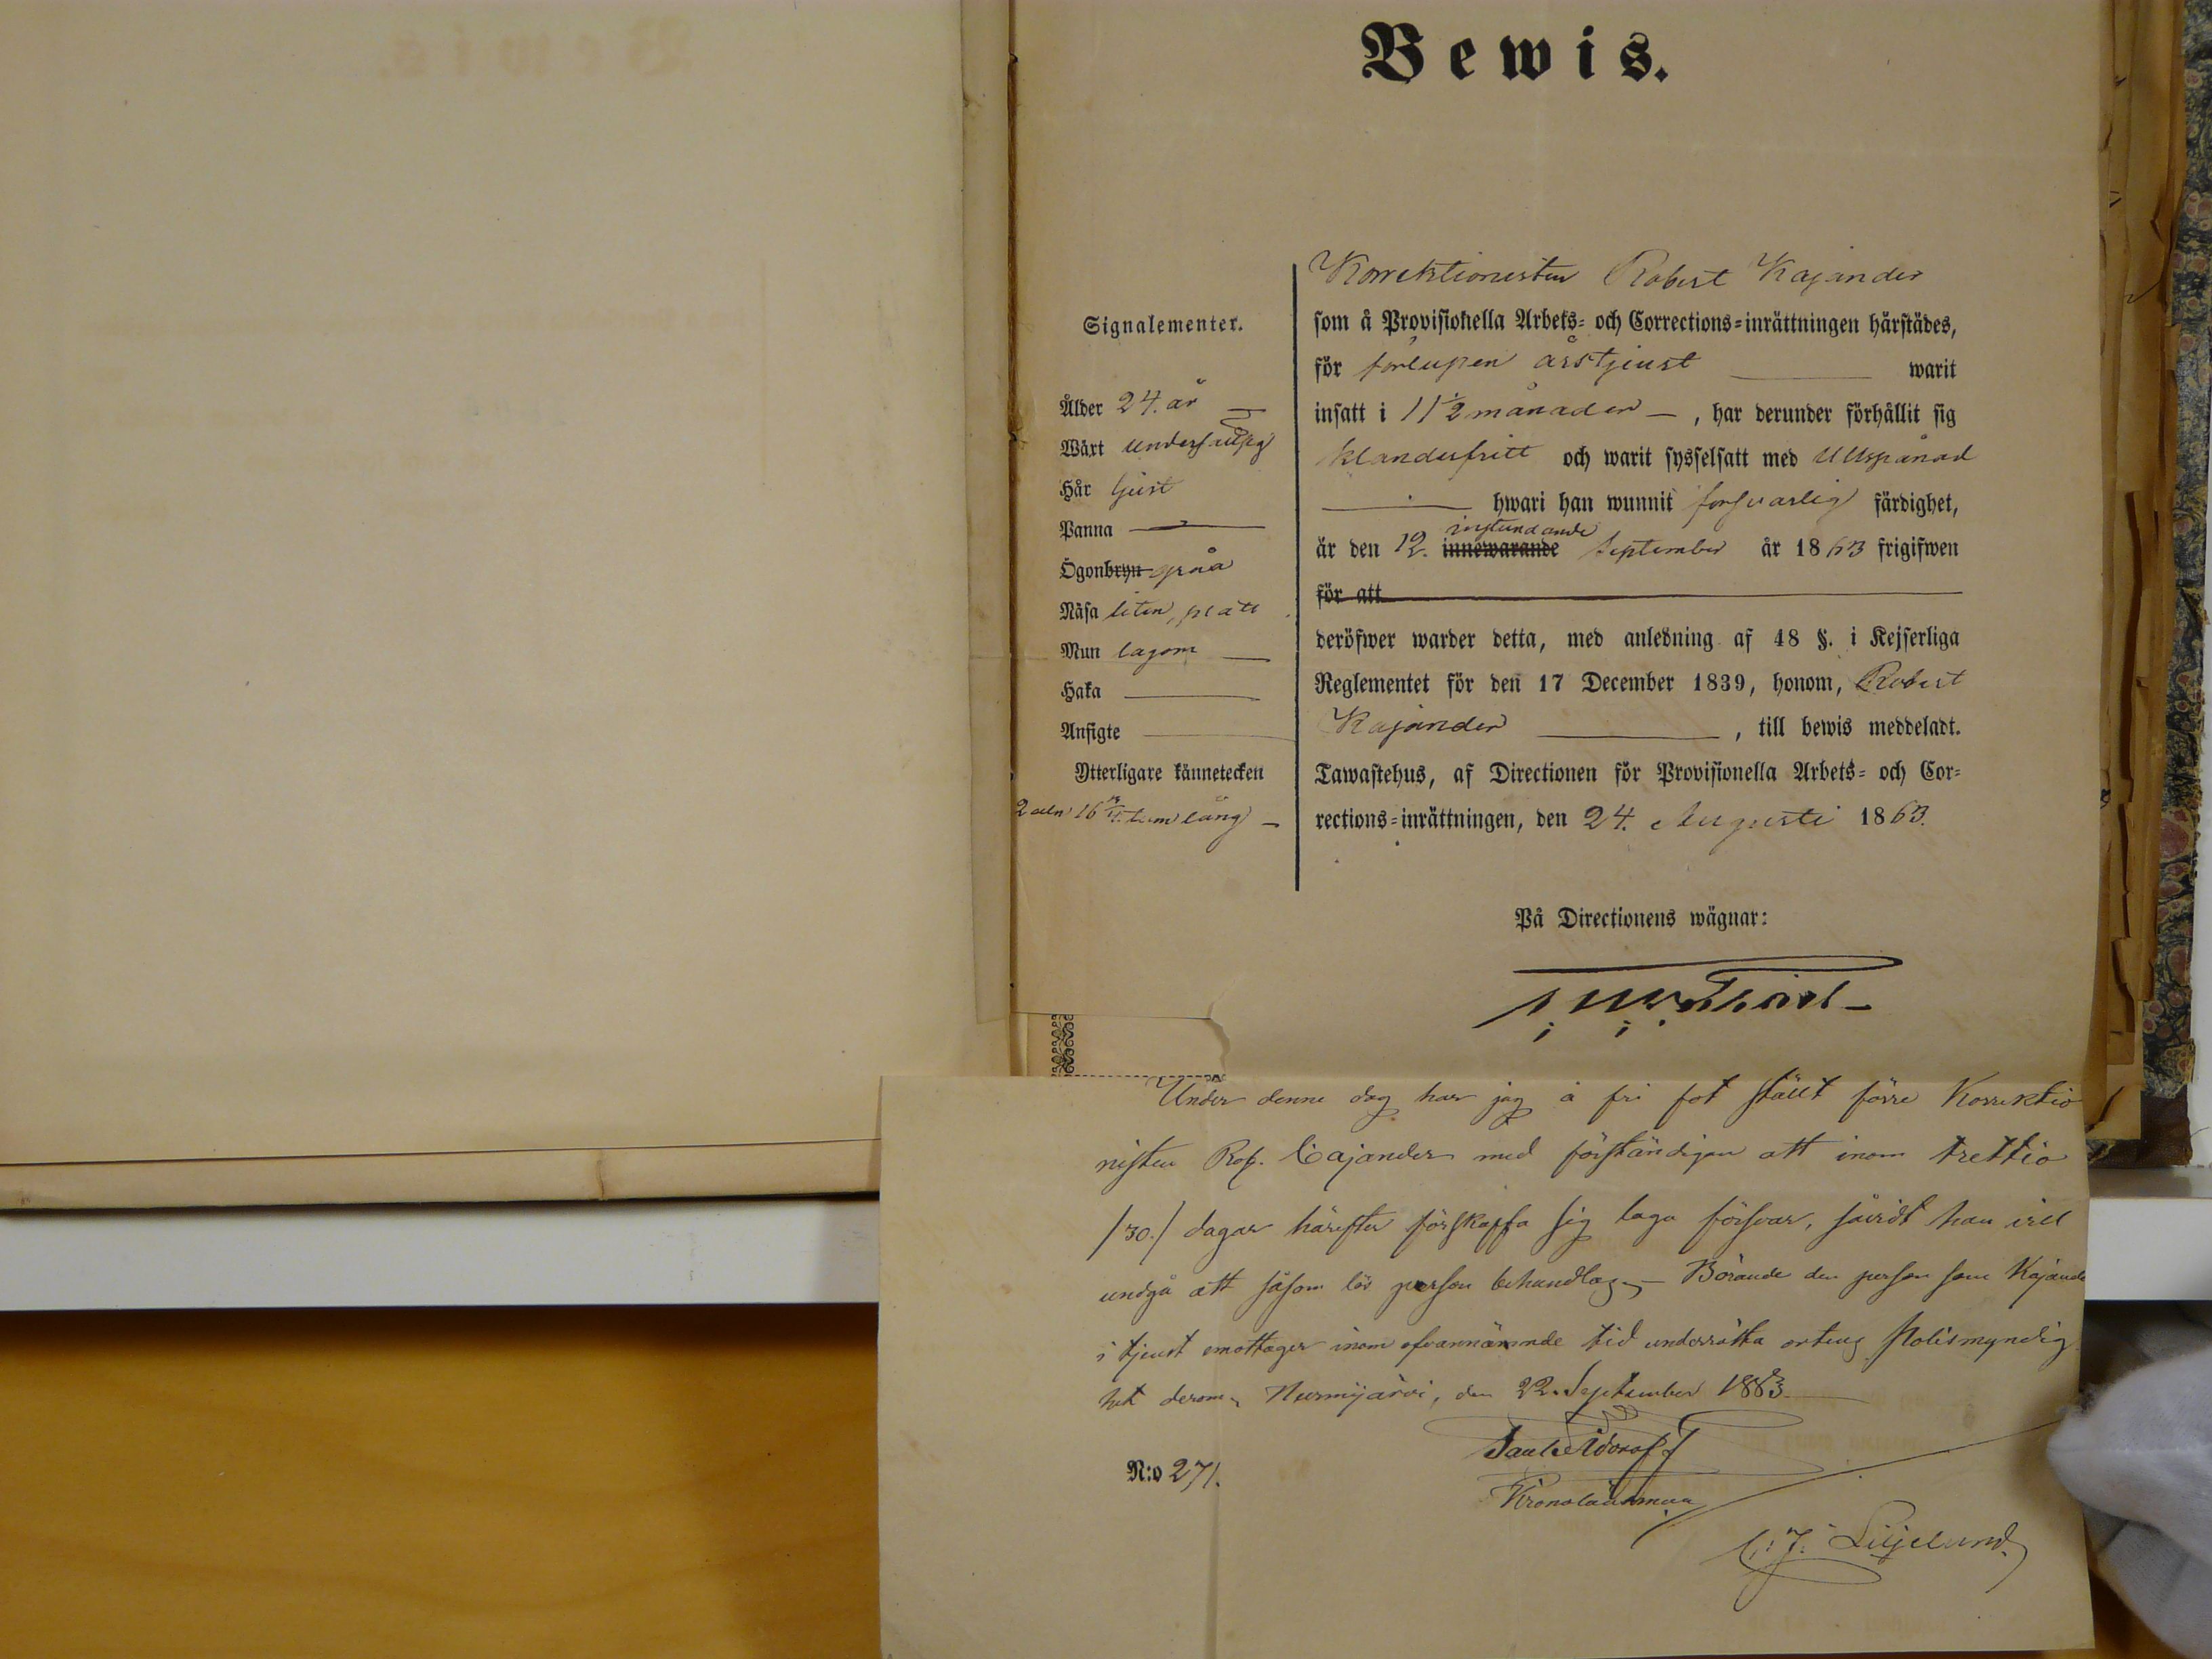 Bewis.
Signalementer.
Ålder 24. år
Wäxt undersätsig
Hår ljust
Panna
Ögonbryn gråa
Näsa liten, platt
Mun lagom
Haka
Ansigte
Ytterligare kännetecken
2 aln 16 3/4 tum lång
Korrektionisten Robert Kajander
som å Provisionella Arbets- och Corrections-inrättningen härstädes,
för förlupen årstjenst warit
insatt i 11 1/2 månader, har derunder förhållit sig
klanderfritt och warit sysselsatt med Ullspånad
hwari han wunnit forsvarlig färdighet,
instundande
är den 12. innewarande September år 1863 frigifwen
för att
deröfwer warder detta, med anledning af 48 §. i Kejserliga
Reglementet för den 17 December 1839, honom, Robert
Kajander, till bewis meddeladt.
Tawastehus, af Directionen för Provisionella Arbets- och Cor-
rections-inrättningen, den 24. Augusti 1863.
På Directionens wägnar:
Under denne dag har jag å fri fot stält förre Korrektio
nisten Rob. Cajander med förständigan att inom trettio
/30./ dagar härefter förskaffa sig laga försvar, såvidt han vill
undgå att såsom lös person behandlas, Börande den person som Kajande
i tjenst emottager inom ofvannämnde tid underrätta ortens Polismyndig
het derom, Nurmijärvi, den 22. September 1883
N:o 271.
Kronolänsman
C. J. Liljelund